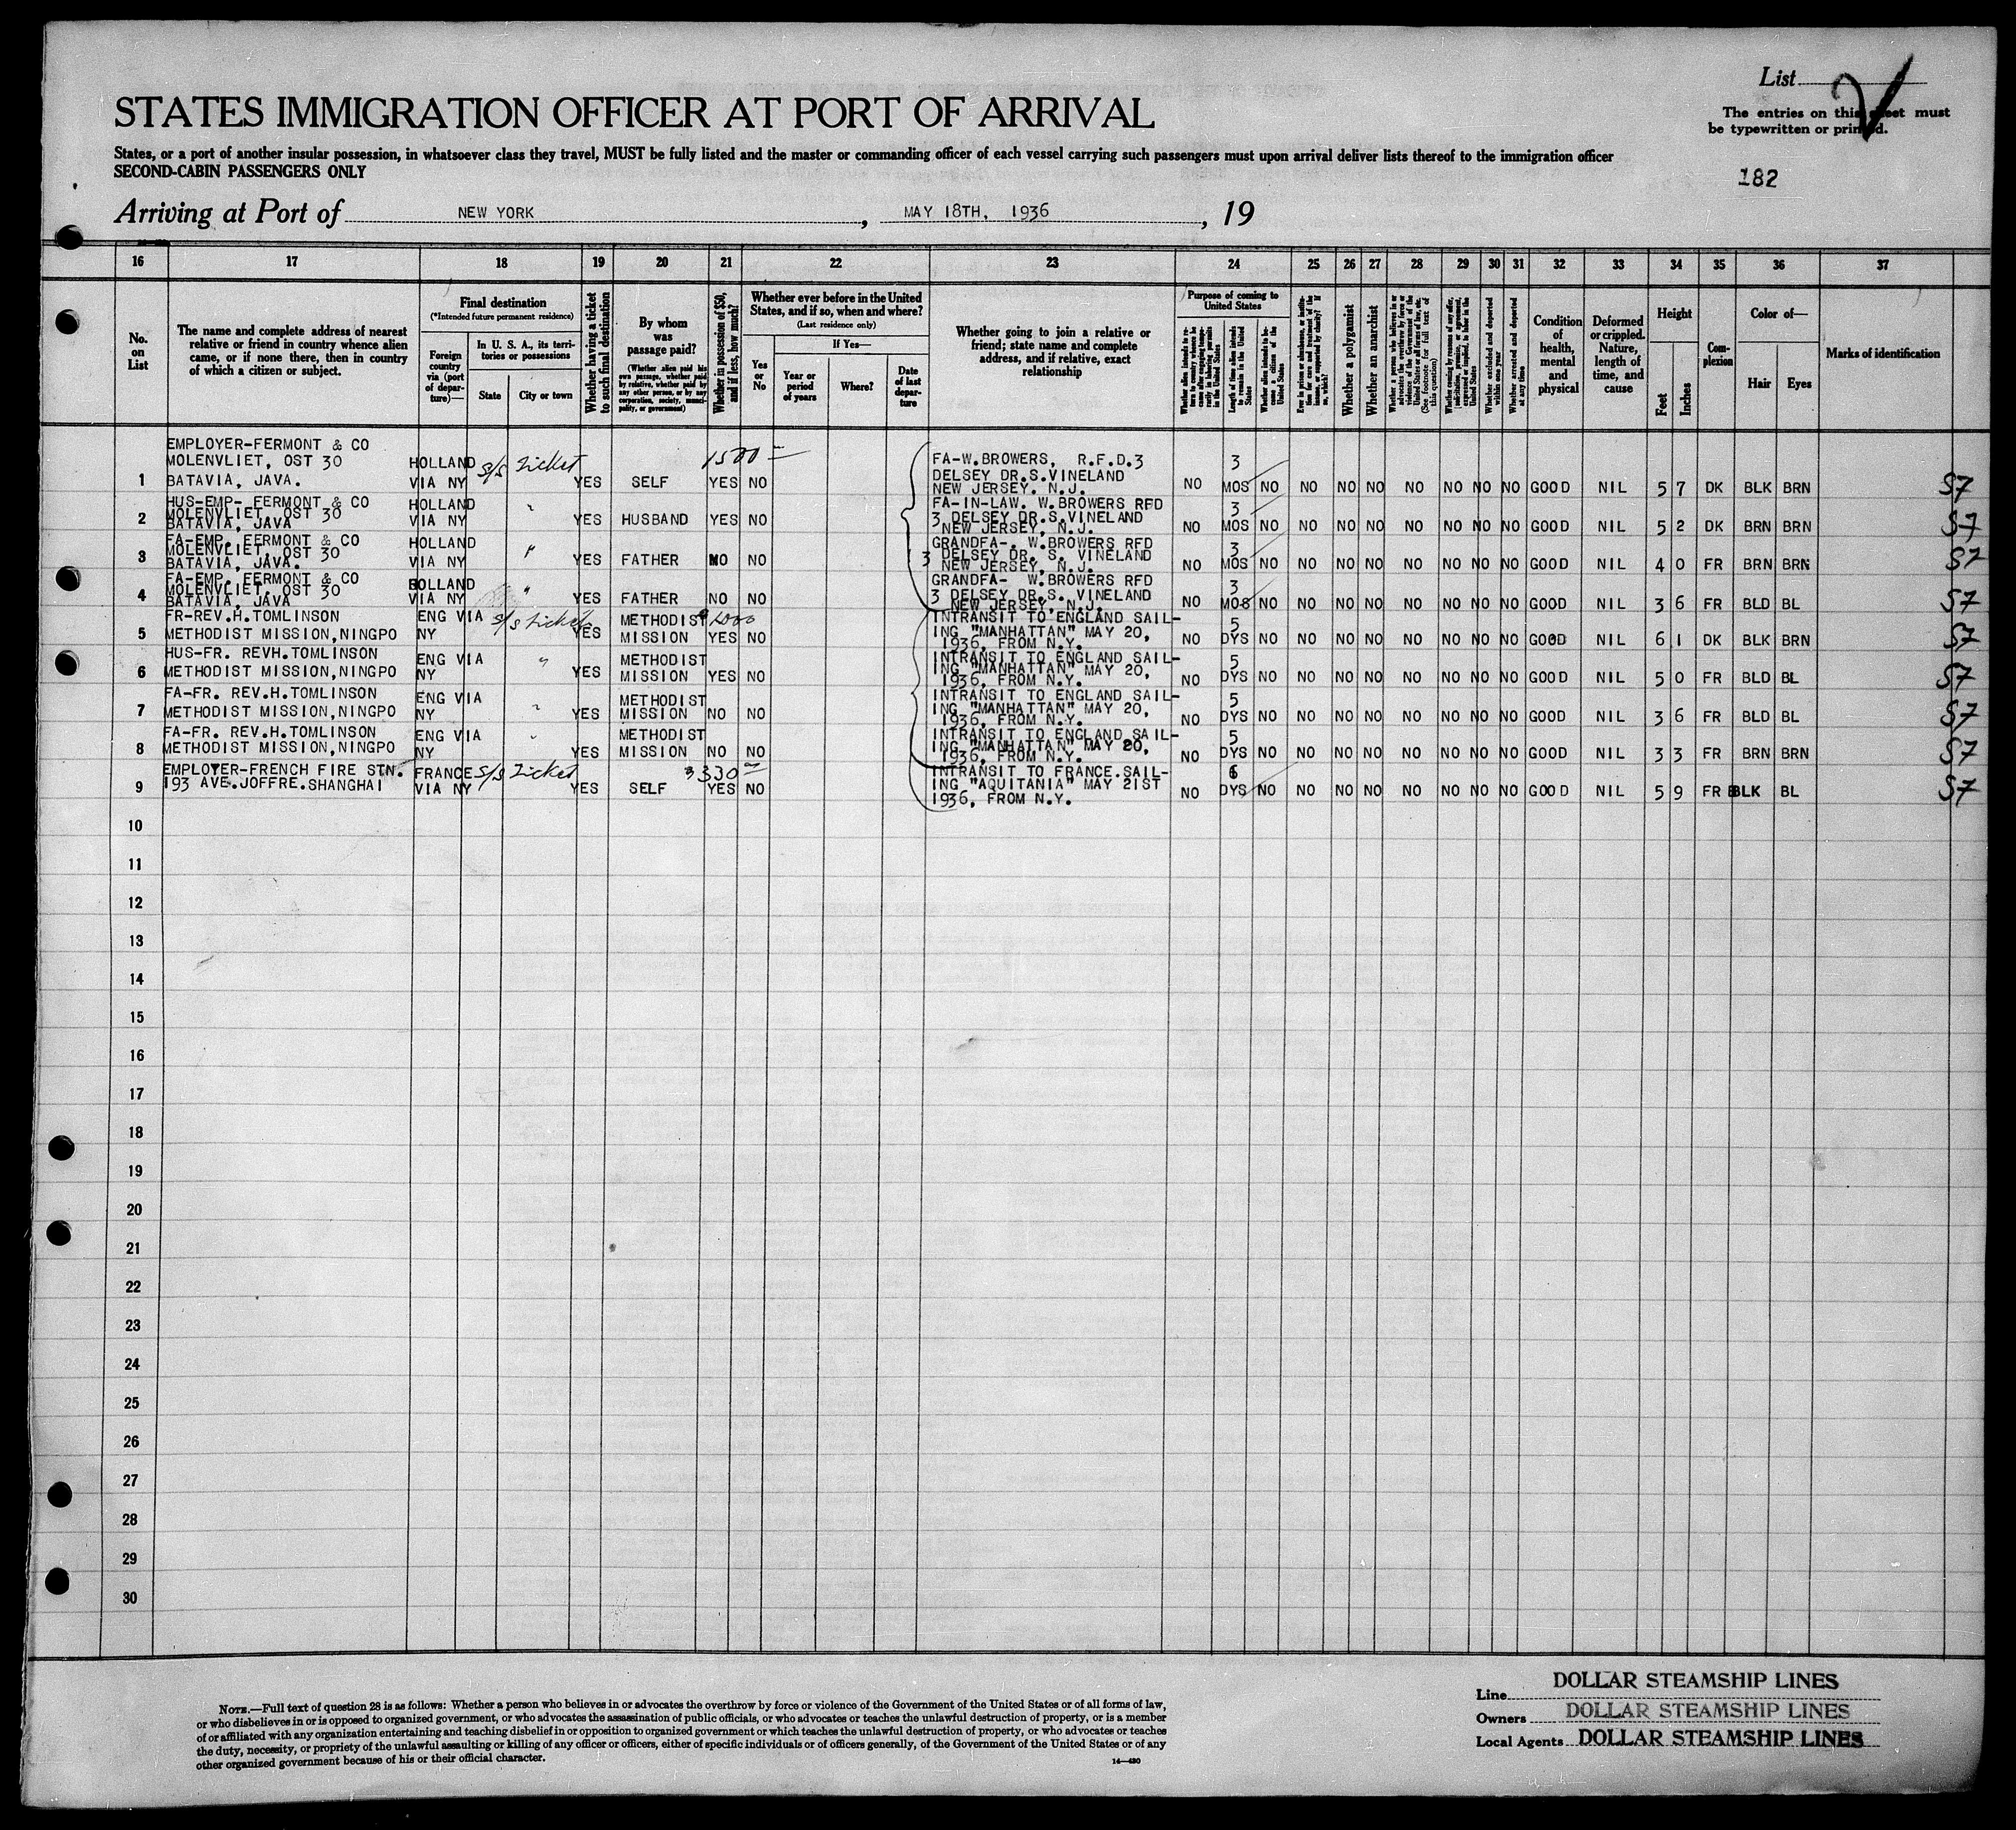 List
The entries on this sheet must
be typewritten or printed.
182
STATES IMMIGRATION OFFICER AT PORT OF ARRIVAL
States, or a port of another insular possession, in whatsoever class they travel, MUST be fully listed and the master or commanding officer of each vessel carrying such passengers must upon arrival deliver lists thereof to the immigration officer
SECOND-CABIN PASSENGERS ONLY
Arriving at Port of NEW YORK, MAY 18TH, 1936, 19
16 17 18 19 20 21 22 23 24 25 26 27 28 29 30 31 32 33 34 35 36 37
No. on List
The name and complete address of nearest relative or friend in country whence alien came, or if none there, then in country of which a citizen or subject.
Final destination
(*Intended future permanent residence)
Foreign country via (port of departure)—
In U. S. A., its territories or possessions
State
City or town
Whether having a ticket to such final destination
By whom was passage paid?
(Whether alien paid his own passage, whether paid by relative, whether paid by any other person, or by any corporation, society, municipality, or government)
Whether in possession of $50, and if less, how much?
Whether ever before in the United States, and if so, when and where?
(Last residence only)
Yes or No
If Yes—
Year or period of years
Where?
Date of last departure
Whether going to join a relative or friend; state name and complete address, and if relative, exact relationship
Purpose of coming to United States
Length of time alien intends to remain in the United States
Whether alien intends to become a citizen of the United States
Whether a polygamist
Whether an anarchist
Whether excluded and deported within one year
Whether arrested and deported at any time
Condition of health, mental and physical
Deformed or crippled. Nature, length of time, and cause
Height
Feet
Inches
Complexion
Color of—
Hair
Eyes
Marks of identification
1 EMPLOYER-FERMONT & CO MOLENVLIET, OST 30 BATAVIA, JAVA. HOLLAND VIA NY S/S Ticket YES SELF 1500 YES NO FA-W.BROWERS, R.F.D.3 DELSEY DR.S.VINELAND NEW JERSEY. N.J. NO 3 MOS NO NO NO NO NO NO NO NO GOOD NIL 5 7 DK BLK BRN S7
2 HUS-EMP- FERMONT & CO MOLENVLIET, OST 30 BATAVIA, JAVA HOLLAND VIA NY " YES HUSBAND YES NO FA-IN-LAW. W.BROWERS RFD 3 DELSEY DR.S.VINELAND NEW JERSEY, N.J. NO 3 MOS NO NO NO NO NO NO NO NO GOOD NIL 5 2 DK BRN BRN S7
3 FA-EMP. FERMONT & CO MOLENVLIET, OST 30 BATAVIA, JAVA. HOLLAND VIA NY " YES FATHER NO NO GRANDFA-, W.BROWERS RFD 3 DELSEY DR. S. VINELAND NEW JERSEY, N.J. NO 3 MOS NO NO NO NO NO NO NO NO GOOD NIL 4 0 FR BRN BRN S7
4 FA-EMP. FERMONT & CO MOLENVLIET, OST 30 BATAVIA, JAVA HOLLAND VIA NY " YES FATHER NO NO GRANDFA- W.BROWERS RFD 3 DELSEY DR.S. VINELAND NEW JERSEY, N.J. NO 3 MOS NO NO NO NO NO NO NO NO GOOD NIL 3 6 FR BLD BL S7
5 FR-REV.H.TOMLINSON METHODIST MISSION,NINGPO ENG VIA NY S/S Ticket YES METHODIST MISSION YES NO INTRANSIT TO ENGLAND SAIL-ING "MANHATTAN" MAY 20, 1936, FROM N.Y. NO 5 DYS NO NO NO NO NO NO NO NO GOOD NIL 6 1 DK BLK BRN S7
6 HUS-FR. REVH.TOMLINSON METHODIST MISSION,NINGPO ENG VIA NY " YES METHODIST MISSION YES NO INTRANSIT TO ENGLAND SAIL-ING "MANHATTAN" MAY 20, 1936, FROM N.Y. NO 5 DYS NO NO NO NO NO NO NO NO GOOD NIL 5 0 FR BLD BL S7
7 FA-FR. REV.H.TOMLINSON METHODIST MISSION,NINGPO ENG VIA NY " YES METHODIST MISSION NO NO INTRANSIT TO ENGLAND SAIL-ING "MANHATTAN" MAY 20, 1936, FROM N.Y. NO 5 DYS NO NO NO NO NO NO NO NO GOOD NIL 3 6 FR BLD BL S7
8 FA-FR. REV.H.TOMLINSON METHODIST MISSION,NINGPO ENG VIA NY " YES METHODIST MISSION NO NO INTRANSIT TO ENGLAND SAIL-ING "MANHATTAN" MAY 20, 1936, FROM N.Y. NO 5 DYS NO NO NO NO NO NO NO NO GOOD NIL 3 3 FR BRN BRN S7
9 EMPLOYER-FRENCH FIRE STN. 193 AVE.JOFFRE.SHANGHAI FRANCE VIA NY S/S Ticket YES SELF 330 YES NO INTRANSIT TO FRANCE.SAIL-ING "AQUITANIA" MAY 21ST 1936, FROM N.Y. NO 6 DYS NO NO NO NO NO NO NO NO GOOD NIL 5 9 FR BLK BL S7
10
11
12
13
14
15
16
17
18
19
20
21
22
23
24
25
26
27
28
29
30
NOTE.—Full text of question 28 is as follows: Whether a person who believes in or advocates the overthrow by force or violence of the Government of the United States or of all forms of law,
or who disbelieves in or is opposed to organized government, or who advocates the assassination of public officials, or who advocates or teaches the unlawful destruction of property, or is a member
of or affiliated with any organization entertaining and teaching disbelief in or opposition to organized government or which teaches the unlawful destruction of property, or who advocates or teaches
the duty, necessity, or propriety of the unlawful assaulting or killing of any officer or officers, either of specific individuals or of officers generally, of the Government of the United States or of any
other organized government because of his or their official character.
14—430
Line DOLLAR STEAMSHIP LINES
Owners DOLLAR STEAMSHIP LINES
Local Agents DOLLAR STEAMSHIP LINES